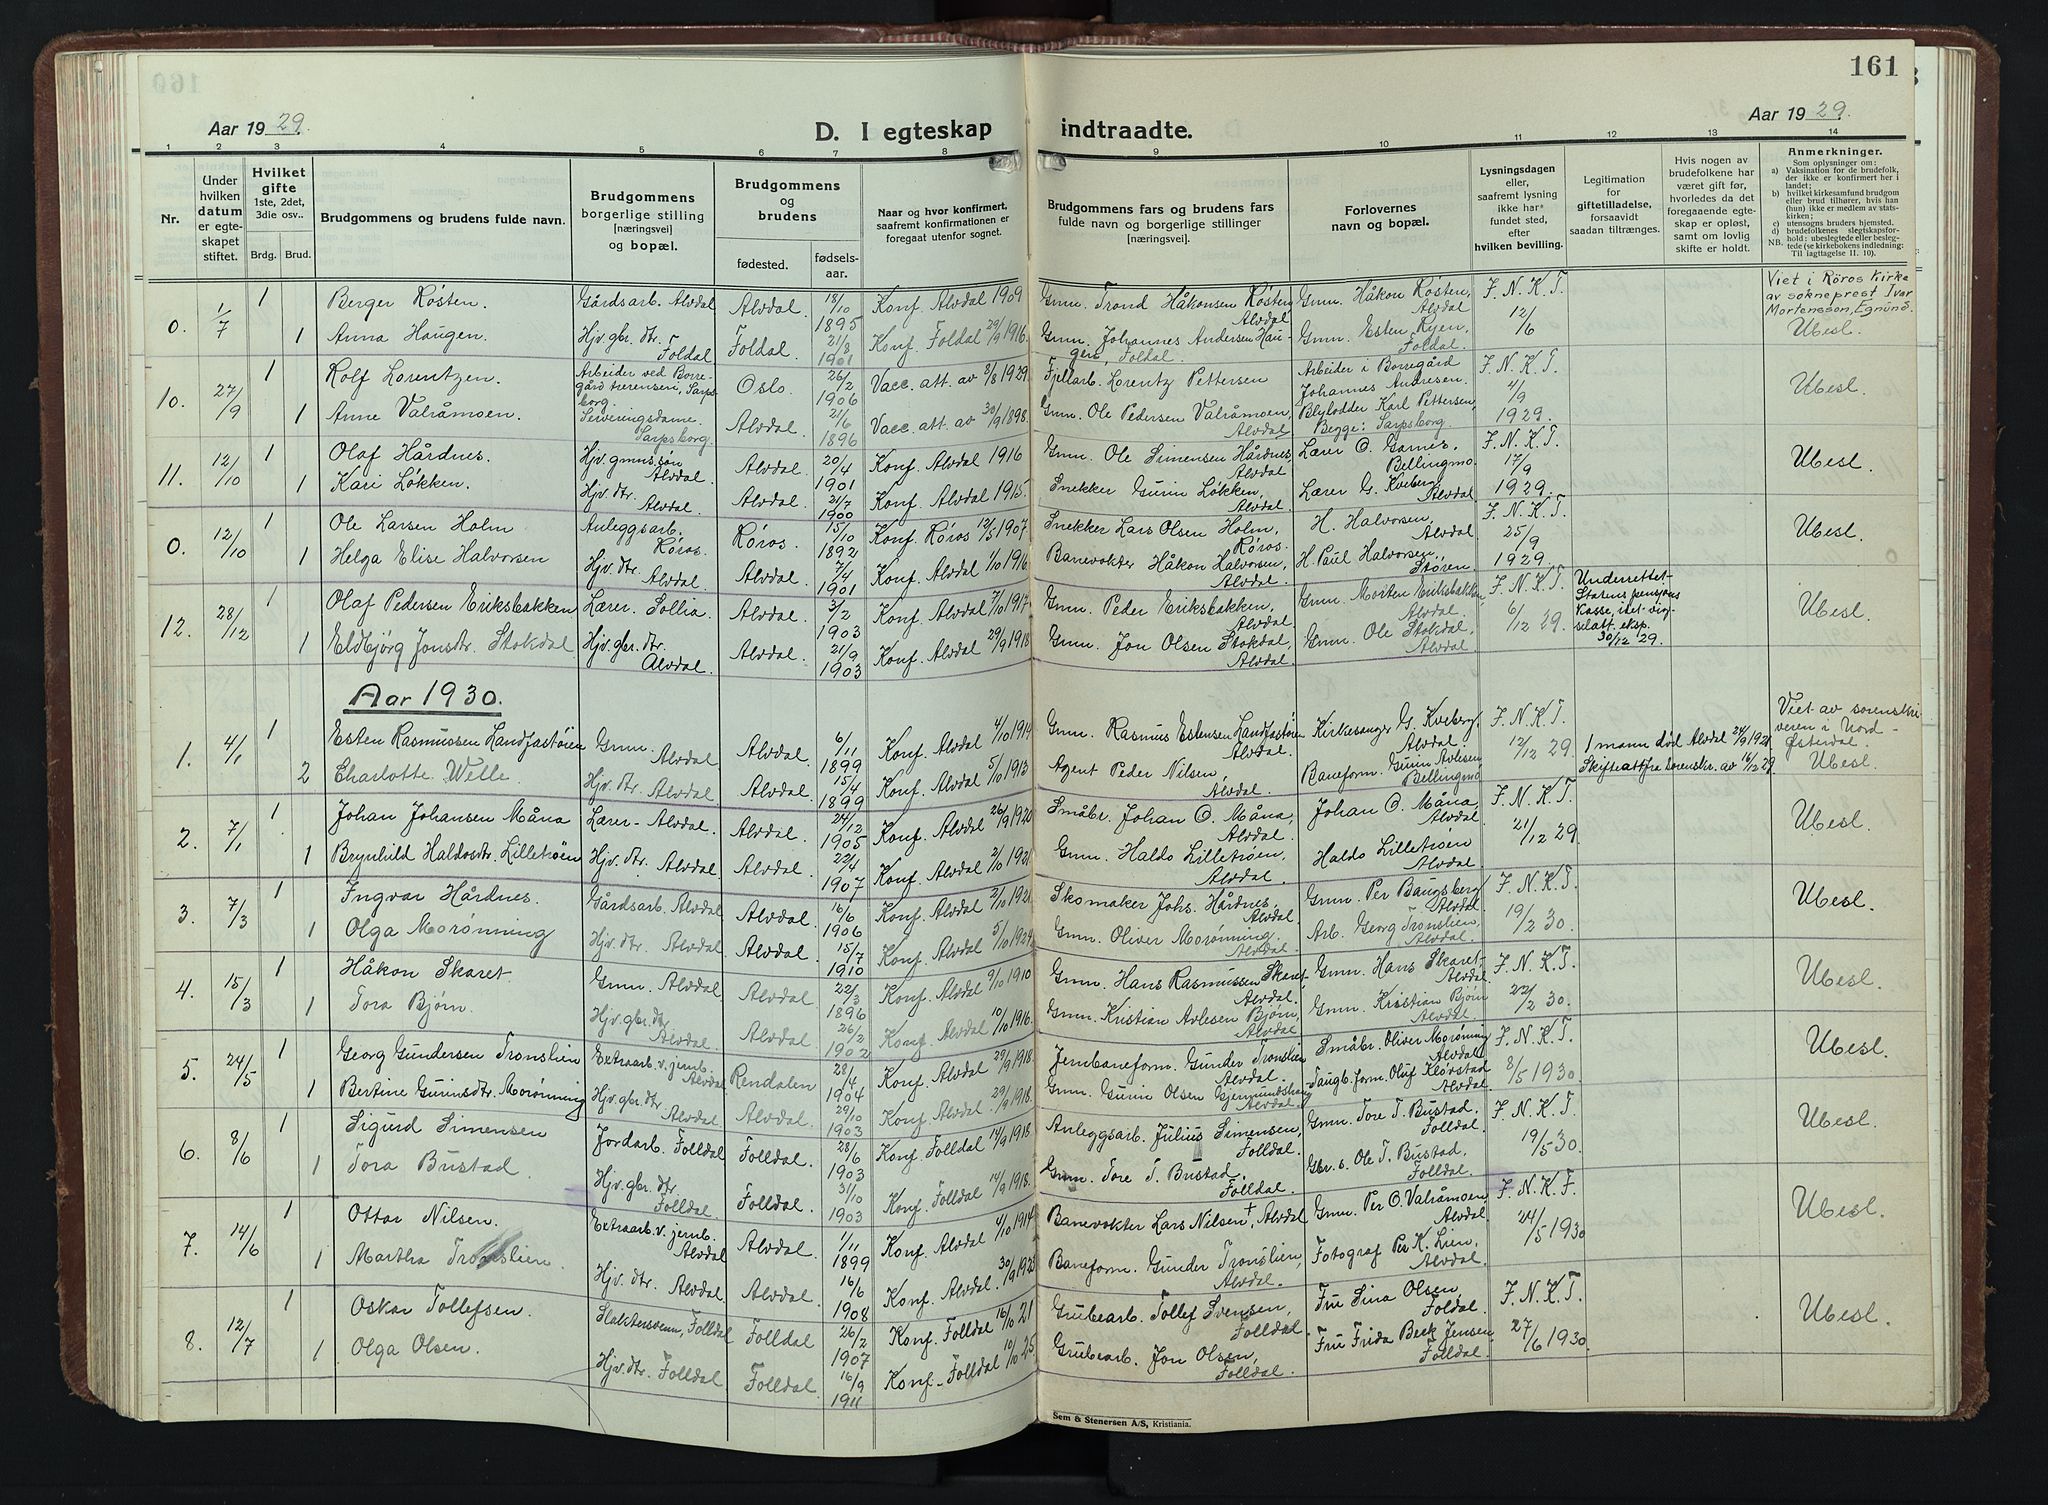 161
Aar 1929.
D. I egteskap indtraadte.
Aar 1929.
1 2 3 4 5 6 7 8 9 10 11 12 13 14
Nr.
Under hvilken datum er egteskapet stiftet.
Hvilket gifte 1ste, 2det, 3die osv..
Brdg. Brud.
Brudgommens og brudens fulde navn.
Brudgommens borgerlige stilling [næringsvei] og bopæl.
Brudgommens og brudens
fødested. fødselsaar.
Naar og hvor konfirmert, saafremt konfirmationen er foregaat utenfor sognet.
Brudgommens fars og brudens fars fulde navn og borgerlige stillinger [næringsvei]
Forlovernes navn og bopæl.
Lysningsdagen eller, saafremt lysning ikke har fundet sted, efter hvilken bevilling.
Legitimation for giftetilladelse, forsaavidt saadan tiltrænges.
Hvis nogen av brudefolkene har været gift før, hvorledes da det foregaaende egteskap er opløst, samt om lovlig skifte er holdt.
Anmerkninger.
Som oplysninger om:
a) Vaksination for de brudefolk, der ikke er konfirmert her i landet;
b) hvilket kirkesamfund brudgom eller brud tilhører, hvis han (hun) ikke er medlem av statskirken;
c) utensogns bruders hjemsted.
d) brudefolkenes slegtskapsforhold: ubeslegtede eller beslegtede (se kirkebokens indledning:
NB. Til iagttagelse II. 10).
0. 1/7 1 Berger Røsten. Gårdsarb. Alvdal Alvdal 18/10 1895 Konf. Alvdal 1909 Gmn. Trond Håkonsen Røsten, Alvdal Gmn. Håkon Røsten, Alvdal F.N.K.T. 12/6 Viet i Röros Kirke av sokneprest Ivar Mortensson, Egnund.
1 Anna Haugen. Hjv. gbr. dtr. Foldal Foldal 21/8 1901 Konf. Foldal 29/9 1916. Gmn. Johannes Andersen Haugen, Foldal. Gmn. Esten Kyen, Foldal Ubesl.
10. 27/9 1 Rolf Lorentzen. Arbeider ved Borregård, Sarpsborg. Oslo. 26/2 1906 Vacc. att. av 8/8 1929 Fjellarb. Lorentz Pettersen Arbeider i Borregård Johannes Andresen. F.N.K.T. 4/9 1929. Ubesl.
1 Anne Valråmoen. Serveringsdame. Sarpsborg. Alvdal. 21/6 1896 Vacc. att. av 30/9 1898. Gmn. Ole Pedersen Valråmoen, Alvdal Blylodder Karl Pettersen, Begge: Sarpsborg.
11. 12/10 1 Olaf Hårdnes. Hjv. gmns. søn Alvdal. Alvdal. 20/4 1901 Konf. Alvdal 1916 Gmn. Ole Simensen Hårdnes, Alvdal Lærer O. Garnes, Bellingmo. F.N.K.T. 17/9 1929. Ubesl.
1 Kari Løkken. Hjv. dtr. Alvdal. Alvdal. 21/7 1900 Konf. Alvdal 1915. Snekker Gunn Løkken, Alvdal. Lærer G. Kveberg Alvdal
0. 12/10 1 Ole Larsen Holm Anleggsarb. Röros. Röros. 15/10 1892 Konf. Röros 12/5 1907. Snekker Lars Olsen Holm, Röros. H. Halvorsen, Alvdal F.N.K.T. 25/9 1929 Ubesl.
1 Helga Elise Halvorsen Hjv. dtr. Alvdal. Alvdal. 7/4 1901 Konf. Alvdal 1/10 1916. Banevokter Håkon Halvorsen, Alvdal. H. Paul Halvorsen, Støren.
12. 28/12 1 Olaf Pedersen Eriksbakken Lærer. Sollia. Alvdal. 3/2 1903 Konf. Alvdal 7/10 1917 Gmn. Peder Eriksbakken, Alvdal Gmn. Morten Eriksbakken, Alvdal. F.N.K.T. 6/12 29. Underrettet Statens pensjons Kasse, eksp. 30/12 29. Ubesl.
1 Eldbjørg Jonsdtr. Stokdal Hjv. gbr. dtr. Alvdal. Alvdal. 21/9 1903 Konf. Alvdal 29/9 1918 Gmn. Jon Olsen Stokdal, Alvdal. Gmn. Ole Stokdal, Alvdal
Aar 1930.
1. 4/1 1 Esten Rasmussen Landfastøien Gmn. Alvdal Alvdal 6/11 1899 Konf. Alvdal 4/10 1914 Gmn. Rasmus Estensen Landfastøien Alvdal. Kirkesanger G. Kveberg, Alvdal F.N.K.T. 12/12 29. 1 mann død Alvdal 24/9 1921 Skifteatt. fra sorenskr. av 16/12 29. Viet av sorenskriveren i Nord-Østerdal.
2 Charlotte Welle. Hjv. dtr. Alvdal. Alvdal. 15/4 1899 Konf. Alvdal 5/10 1913 Agent Peder Nilsen, Alvdal. Baneform. Gunn Avlesen Bellingmo Ubesl.
2. 7/1 1 Johan Johansen Måna Lærer- Alvdal. Alvdal. 24/12 1905 Konf. Alvdal 26/9 1920 Småbr. Johan O. Måna, Alvdal. Johan O. Måna, Alvdal. F.N.K.T. 21/12 29. Ubesl.
1 Brynhild Haldosdtr. Lilletrøen Hjv. dtr. Alvdal. Alvdal. 22/4 1907 Konf. Alvdal 2/10 1921 Gmn. Haldo Lilletrøen, Alvdal. Haldo Lilletrøen Alvdal
3. 7/3 1 Ingvar Hårdnes. Gårdsarb. Alvdal Alvdal. 16/6 1906 Konf. Alvdal 2/10 1921 Skomaker Johs. Hårdnes, Alvdal Gmn. Per Baugsberg Alvdal F.N.K.T. 19/2 30. Ubesl.
1 Olga Morønning Hjv. dtr. Alvdal. Alvdal. 15/7 1910 Konf. Alvdal 5/10 1924. Gmn. Oliver Morønning. Alvdal. Arb. Georg Tronslien, Alvdal.
4. 15/3 1 Håkon Skaret Gmn. Alvdal Alvdal. 22/3 1896 Konf. Alvdal 9/10 1910 Gmn. Hans Rasmussen Skaret, Alvdal. Gmn. Hans Skaret Alvdal F.N.K.T. 22/2 30. Ubesl.
1 Tora Bjørn. Hjv. gbr. dtr. Alvdal. Alvdal. 26/2 1902 Konf. Alvdal 10/10 1916. Gmn. Kristian Avlesen Bjørn, Alvdal Gmn. Kristian Bjørn Alvdal.
5. 24/5 1 Georg Gundersen Tronslien Extraarb. v. jernb. Alvdal Rendalen 28/4 1904 Konf. Alvdal 29/9 1918. Jernbaneform. Gunder Tronslien Alvdal. Småbr. Oliver Morønning Alvdal F.N.K.T. 8/5 1930 Ubesl.
1 Bertine Gunnsdtr. Morønning Hjv. gbr. dtr. Alvdal. Alvdal. 29/10 1903 Konf. Alvdal 29/9 1918. Gmn. Gunn Olsen Gjermundshaug Alvdal. Taugb. form. Oluf Klørstad Alvdal.
6. 8/6 1 Sigurd Simensen Jordarb. Folldal Folldal. 28/6 1903 Konf. Folldal 14/9 1918. Anleggsarb. Julius Simensen, Folldal. Gmn. Tore T. Bustad. Folldal. F.N.K.T. 19/5 30. Ubesl.
1 Tora Bustad Hjv. gbr. dtr. Folldal Folldal. 31/10 1903 Konf. Folldal 14/9 1918. Gmn. Tore T. Bustad, Folldal. Gbr. s. Ole T. Bustad, Folldal.
7. 14/6 1 Ottar Nilsen. Extraarb. v. jernb. Alvdal Alvdal. 1/11 1899 Konf. Alvdal 4/10 1914 Banevokter Lars Nilsen †, Alvdal Gmn. Per O. Valråmoen Alvdal F.N.K.F. 24/5 1930 Ubesl.
1 Martha Tronslien. Hjv. dtr. Alvdal Alvdal. 16/6 1908 Konf. Alvdal. 30/9 1923 Baneform. Gunder Tronslien, Alvdal. Fotograf Per K. Lien, Alvdal.
8. 12/7 1 Oskar Tollefsen. Slaktersvenn, Folldal Folldal 26/2 1907 Konf. Folldal 16/10 21 Grubearb. Tollef Svensen, Folldal. Fru Sina Olsen, Foldal. F.N.K.T. 27/6 1930. Ubesl.
1 Olga Olsen. Hjv. dtr. Folldal Folldal. 16/9 1911 Konf. Folldal 10/10 25. Grubearb. Jon Olsen, Folldal. Fru Frida Beck Jensen Folldal.
Sem & Stenersen A/S, Kristiania.